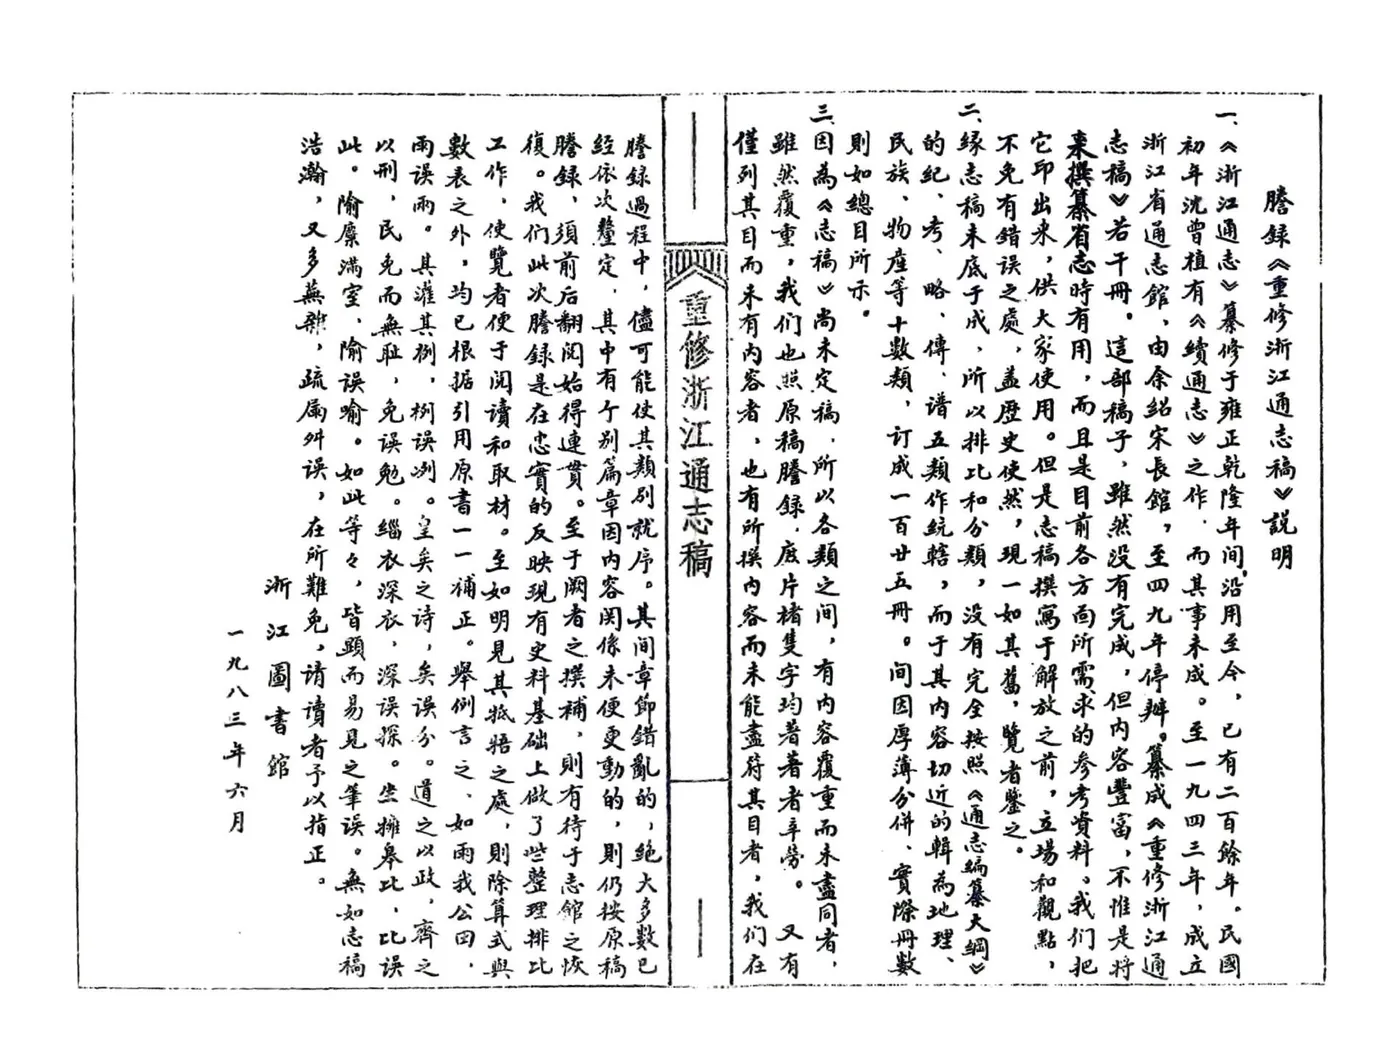 謄録《重修浙江通志稿》説明
一、《浙江通志》纂修于雍正乾隆年间，沿用至今，已有二百餘年。民國
初年沈曾植有《續通志》之作，而其事未成。至一九四三年，成立
浙江省通志館，由余紹宋長館，至四九年停辦。纂成《重修浙江通
志稿》若干冊。這部稿子，雖然没有完成，但内容豐富，不惟是將
来撰纂省志時有用，而且是目前各方面所需求的参考資料。我們把
它印出来，供大家使用。但是志稿撰寫于解放之前，立場和觀點，
不免有錯误之處，盖歴史使然，現一如其舊，覽者鑒之。
二、缘志稿未底于成，所以排比和分類，没有完全按照《通志編纂大綱》
的纪、考、略、傳、谱五類作統轄，而于其内容切近的輯為地理、
民族、物産等十數類，订成一百廿五冊。间因厚薄分併、實際冊數
則如總目所示。
三、因為《志稿》尚未定稿，所以各類之间，有内容覆重而未盡同者，
雖然覆重，我们也照原稿謄録，底片楮隻字均著著者辛劳。又有
僅列其目而未有内容者，也有所撰内容而未能盡符其目者，我们在
重修浙江通志稿
謄録過程中，儘可能使其類别就序。其间章節錯亂的，绝大多数已
經依次釐定，其中有个别篇章因内容関係未便更動的，則仍按原稿
謄録，須前后翻阅始得連贯。至于阙者之撰補，則有待于志館之恢
復。我们此次謄録是在忠實的反映現有史料基础上做了些整理排比
工作，使覽者便于阅讀和取材。至如明見其牴牾之處，則除算式與
數表之外，均已根据引用原書一一補正。舉例言之，如雨我公田，
雨误兩。其灌其栵，栵误冽。皇矣之诗，矣误分。道之以政，齊之
以刑，民免而無耻，免误勉。緇衣深衣，深误探。坐擁皋比，比误
此。隃麋满室，隃误喻。如此等々，皆顯而易見之筆误。無如志稿
浩瀚，又多蕪雜，疏属舛误，在所難免，请讀者予以指正。
浙江圖書館
一九八三年六月